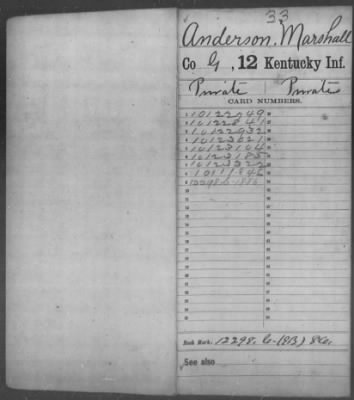 33
Anderson, Marshall
Co G, 12 Kentucky Inf.
Private Private
CARD NUMBERS.
1 10122749
2 10122841
3 10122932
4 10123021
5 10123104
6 10123185
7 10123322
8
9 12298-C-1886
Book Mark: 12298, C-
See also